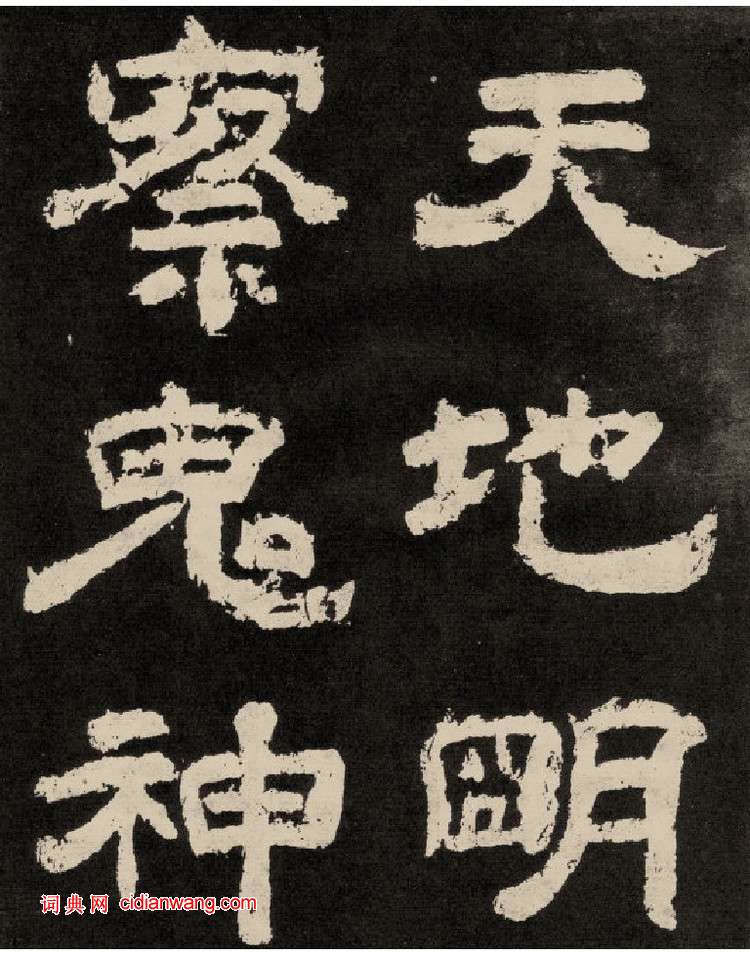 天地明
察鬼神
词典网 cidianwang.com